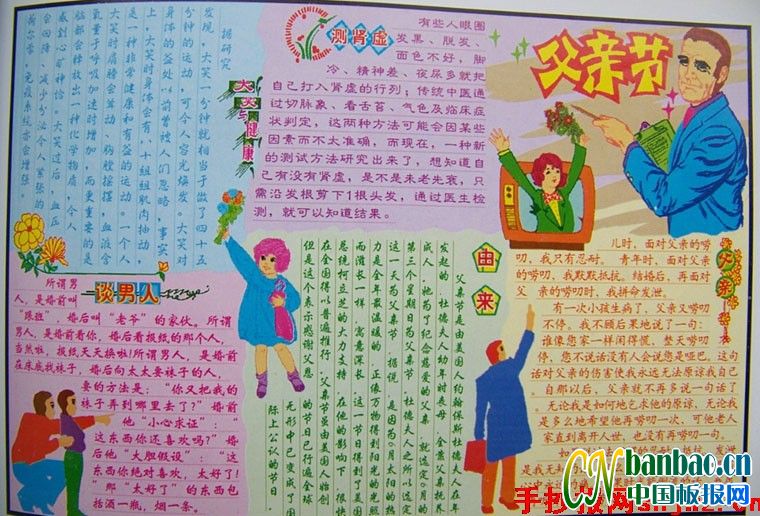 大笑与健康
据研究
发现，大笑一分钟就相当于做了四十五
分钟的运动，可令人容光焕发。大笑对
身体的益处以前曾被人们忽略，事实
上，大笑时身体会有八十组肌肉抽动，
是一种非常健康和有益的运动。一个人
大笑时肩膀会耸动，胸膛摇摆，血液含
氧量于呼吸加速时增加，而更重要的是
脑部会释放出一种化学物质，令人
感到心旷神怡。大笑过后，血压
会回降，减少分泌令人紧张的
荷尔蒙，免疫系统亦会增强
测肾虚
有些人眼圈
发黑、脱发、
面色不好，脚
冷、精神差、夜尿多就把
自己打入肾虚的行列；传统中医通
过切脉象、看舌苔、气色及临床症
状判定，这两种方法可能会因某些
因素而不太准确，而现在，一种新
的测试方法研究出来了，想知道自
己有没有肾虚，是不是未老先衰，只
需沿发根剪下1根头发，通过医生检
测，就可以知道结果。
父亲节
谈男人
所谓男
人，是婚前叫
“跟班”，婚后叫“老爷”的家伙。所谓
男人，是婚前看你，婚后看报纸的那个人，
当然啦，报纸天天换啦!所谓男人，是婚前
在床底找袜子，婚后向太太要袜子的人，
要的方法是：“你又把我的
袜子弄到哪里去了？”婚前
他“小心求证”：“
这东西你还喜欢吗？”婚
后他“大胆假设”：“这
东西你绝对喜欢，太好了！
”那“太好了”的东西包
括酒一瓶，烟一条。
由来
父亲节是由美国人约翰保斯杜德夫人在年
发起的，杜德夫人幼年时丧母，全靠父亲抚养
成人，她为了纪念慈爱的父亲，就选定6月的
第三个星期日为父亲节，杜德夫人之所以选定
这一天为父亲节，据说，是因为6月太阳的热
力是全年最温暖的，正像万物得到阳光的光照
而滋长一样，寓意深长，这一节日得到了美国
总统柯立芝的大力支持，在他的影响下，很快
在全国得以普遍推行。父亲节虽由美国人始创，
但是这个表示感谢父恩的节日已行遍全球，
无形中已变成了国
际上公认的节日。
父亲
儿时，面对父亲的唠
叨，我只有忍耐。青年时，面对父亲的唠
叨，我默默抵抗。结婚后，再面对
父亲的唠叨时，我拼命发泄。
有一次小孩生病了，父亲又唠叨
不停。我不顾后果地说了一句：
谁像您家一样闲得慌，整天唠叨
停，您不说话没有人会说您是哑巴，这句
话对父亲的伤害使我永远无法原谅我自己
自那以后、父亲就不再多说一句话了
无论我是如何地乞求他的原谅，无论我
是多么地希望他再唠叨一次，可他老人
家直到离开人世，也没有再唠叨一句。
CN banbao.cn
中国板报网
手抄报网